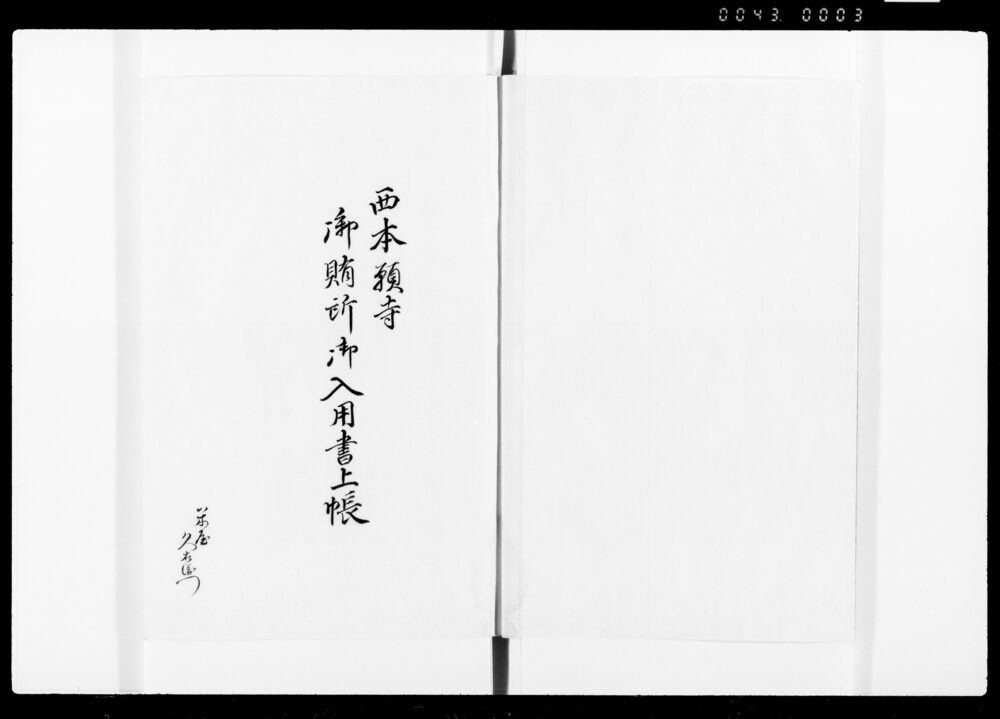 0043. 0003
西本願寺
御賄所御入用書上帳
屋
久右衛門